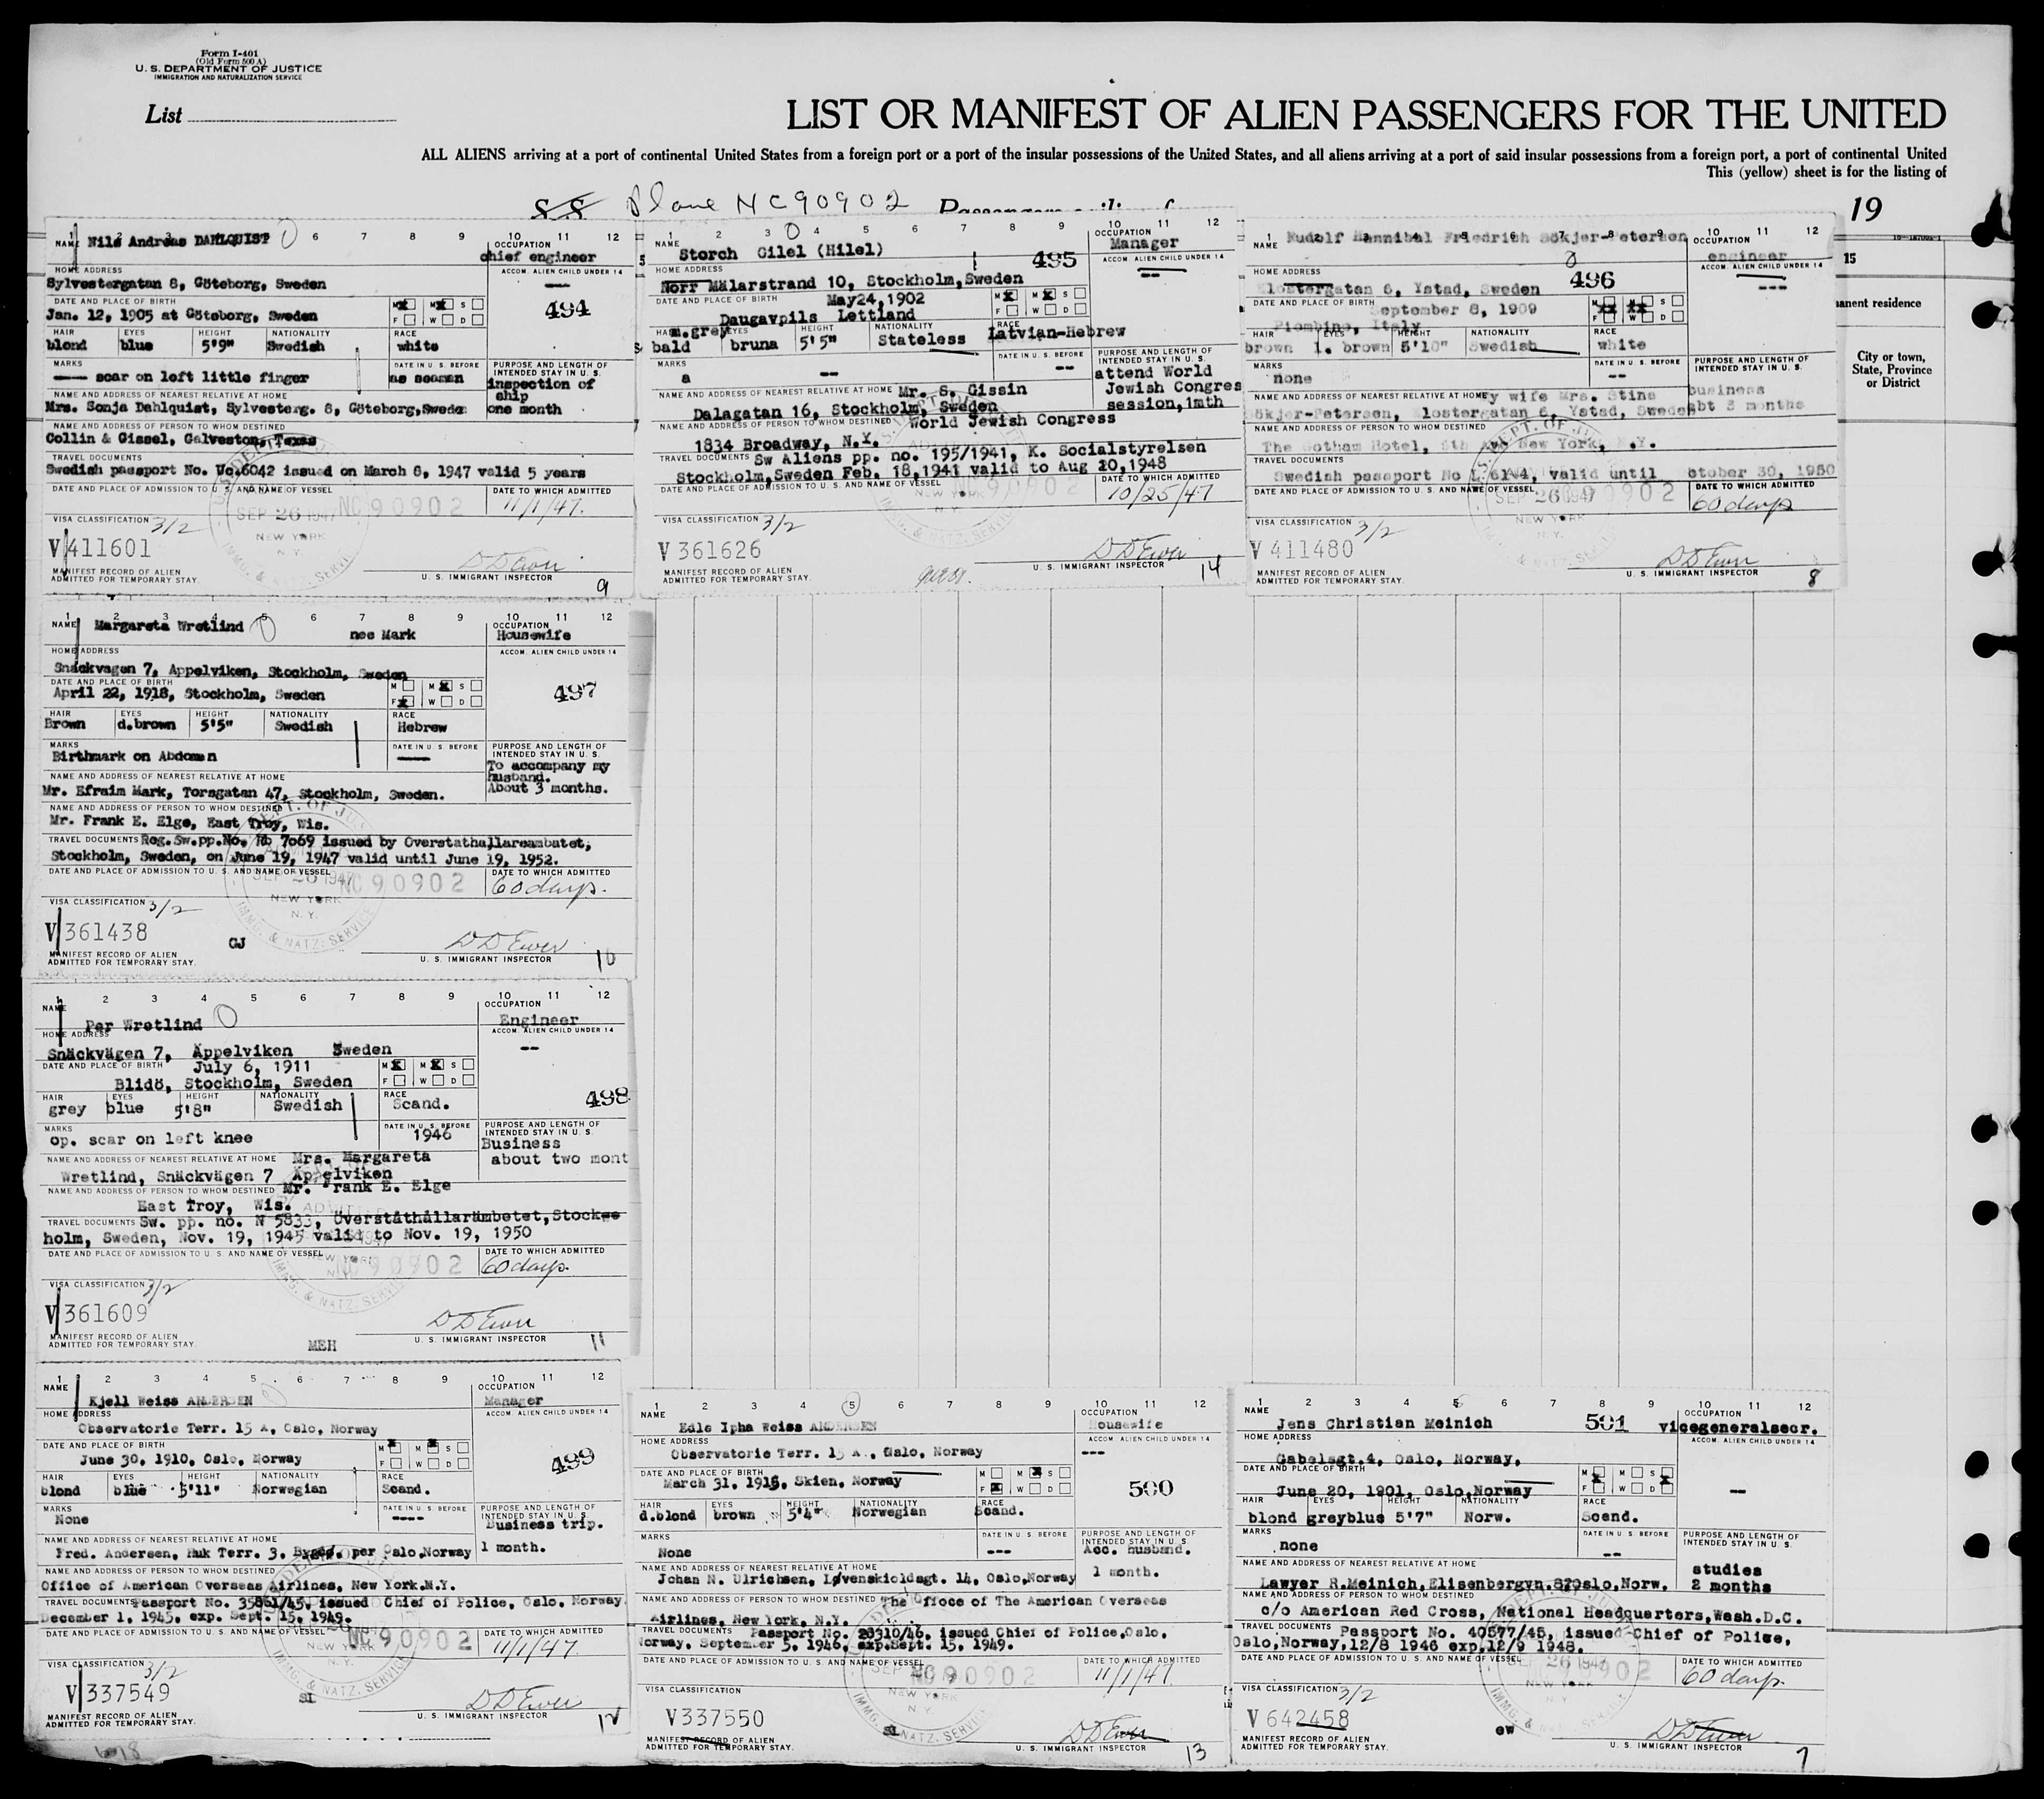 Form I-401
(Old Form 500 A)
U. S. DEPARTMENT OF JUSTICE
IMMIGRATION AND NATURALIZATION SERVICE
List
LIST OR MANIFEST OF ALIEN PASSENGERS FOR THE UNITED
ALL ALIENS arriving at a port of continental United States from a foreign port or a port of the insular possessions of the United States, and all aliens arriving at a port of said insular possessions from a foreign port, a port of continental United
This (yellow) sheet is for the listing of
SS Plane NC90902
19
15
anent residence
City or town,
State, Province
or District
1 2 3 4 5 6 7 8 9 10 11 12
NAME Nils Andreas DAHLQUIST
OCCUPATION
chief engineer
HOME ADDRESS
ACCOM. ALIEN CHILD UNDER 14
Sylvestergatan 8, Göteborg, Sweden
---
DATE AND PLACE OF BIRTH
M X M X S
F W D
494
Jan. 12, 1905 at Göteborg, Sweden
HAIR EYES HEIGHT NATIONALITY RACE
blond blue 5'9" Swedish white
MARKS DATE IN U. S. BEFORE PURPOSE AND LENGTH OF INTENDED STAY IN U. S.
--- scar on left little finger as seaman inspection of ship
one month
NAME AND ADDRESS OF NEAREST RELATIVE AT HOME
Mrs. Sonja Dahlquist, Sylvesterg. 8, Göteborg, Sweden
NAME AND ADDRESS OF PERSON TO WHOM DESTINED
Collin & Gissel, Galveston, Texas
TRAVEL DOCUMENTS
Swedish passport No. Uc.6042 issued on March 8, 1947 valid 5 years
DATE AND PLACE OF ADMISSION TO U. S. AND NAME OF VESSEL DATE TO WHICH ADMITTED
SEP 26 1947 NC90902 11/1/47.
NEW YORK
N. Y.
IMMG. & NATZ. SERVICE
VISA CLASSIFICATION 3/2
V 411601
D D Ewer
MANIFEST RECORD OF ALIEN
ADMITTED FOR TEMPORARY STAY.
U. S. IMMIGRANT INSPECTOR
9
1 2 3 4 5 6 7 8 9 10 11 12
NAME Storch Gilel (Hilel)
495
OCCUPATION
Manager
HOME ADDRESS
ACCOM. ALIEN CHILD UNDER 14
Norr Mälarstrand 10, Stockholm, Sweden
--
DATE AND PLACE OF BIRTH May24, 1902
Daugavpils Lettland
M X M X S
F W D
HAIR EYES HEIGHT NATIONALITY RACE
m.grey
bald bruna 5'5" Stateless Latvian-Hebrew
MARKS DATE IN U. S. BEFORE PURPOSE AND LENGTH OF INTENDED STAY IN U. S.
a -- -- attend World
Jewish Congres
session, 1mth
NAME AND ADDRESS OF NEAREST RELATIVE AT HOME Mr. S. Gissin
Dalagatan 16, Stockholm, Sweden
NAME AND ADDRESS OF PERSON TO WHOM DESTINED World Jewish Congress
1834 Broadway, N.Y.
TRAVEL DOCUMENTS Sw Aliens pp. no. 195/1941, K. Socialstyrelsen
Stockholm, Sweden Feb. 18, 1941 valid to Aug 20, 1948
DATE AND PLACE OF ADMISSION TO U. S. AND NAME OF VESSEL DATE TO WHICH ADMITTED
NC90902 10/25/47
NEW YORK
N. Y.
VISA CLASSIFICATION 3/2
V 361626
D D Ewer
MANIFEST RECORD OF ALIEN
ADMITTED FOR TEMPORARY STAY.
U. S. IMMIGRANT INSPECTOR
14
1 2 3 4 5 6 7 8 9 10 11 12
NAME Rudolf Hannibal Friedrich Sökjer-Petersen
OCCUPATION
engineer
HOME ADDRESS
496
ACCOM. ALIEN CHILD UNDER 14
Klostergatan 6, Ystad, Sweden
---
DATE AND PLACE OF BIRTH September 8, 1909
Piombino, Italy
M S
F W D
HAIR EYES HEIGHT NATIONALITY RACE
brown l. brown 5'10" Swedish white
MARKS DATE IN U. S. BEFORE PURPOSE AND LENGTH OF INTENDED STAY IN U. S.
none -- business
abt 3 months
NAME AND ADDRESS OF NEAREST RELATIVE AT HOME My wife Mrs. Stina
Sökjer-Petersen, Klostergatan 6, Ystad, Sweden
NAME AND ADDRESS OF PERSON TO WHOM DESTINED
The Gotham Hotel, 5th Ave New York, N.Y.
TRAVEL DOCUMENTS
Swedish passport No valid until October 30, 1950
DATE AND PLACE OF ADMISSION TO U. S. AND NAME OF VESSEL DATE TO WHICH ADMITTED
SEP 26 1947 NC90902 60 days
NEW YORK
N. Y.
IMMG. & NATZ. SERVICE
VISA CLASSIFICATION 3/2
V 411480
D D Ewer
MANIFEST RECORD OF ALIEN
ADMITTED FOR TEMPORARY STAY.
U. S. IMMIGRANT INSPECTOR
8
1 2 3 4 5 6 7 8 9 10 11 12
NAME Margareta Wretlind nee Mark
OCCUPATION
Housewife
HOME ADDRESS
ACCOM. ALIEN CHILD UNDER 14
Snäckvagen 7, Appelviken, Stockholm, Sweden
DATE AND PLACE OF BIRTH
M M X S
F X W D
497
April 22, 1918, Stockholm, Sweden
HAIR EYES HEIGHT NATIONALITY RACE
Brown d.brown 5'5" Swedish Hebrew
MARKS DATE IN U. S. BEFORE PURPOSE AND LENGTH OF INTENDED STAY IN U. S.
Birthmark on Abdomen --- To accompany my
husband.
About 3 months.
NAME AND ADDRESS OF NEAREST RELATIVE AT HOME
Mr. Efraim Mark, Torsgatan 47, Stockholm, Sweden.
NAME AND ADDRESS OF PERSON TO WHOM DESTINED
Mr. Frank E. Elge, East Troy, Wis.
TRAVEL DOCUMENTS Reg.Sw.pp.No. Rb 7069 issued by Overstathallareambatet,
Stockholm, Sweden, on June 19, 1947 valid until June 19, 1952.
DATE AND PLACE OF ADMISSION TO U. S. AND NAME OF VESSEL DATE TO WHICH ADMITTED
SEP 26 1947 NC90902 60 days.
NEW YORK
N. Y.
IMMG. & NATZ. SERVICE
VISA CLASSIFICATION 3/2
V 361438 GJ
D D Ewer
MANIFEST RECORD OF ALIEN
ADMITTED FOR TEMPORARY STAY.
U. S. IMMIGRANT INSPECTOR
10
1 2 3 4 5 6 7 8 9 10 11 12
NAME Per Wretlind
OCCUPATION
Engineer
HOME ADDRESS
ACCOM. ALIEN CHILD UNDER 14
Snäckvägen 7, Äppelviken Sweden
--
DATE AND PLACE OF BIRTH July 6, 1911
Blidö, Stockholm, Sweden
M X M X S
F W D
498
HAIR EYES HEIGHT NATIONALITY RACE
grey blue 5'8" Swedish Scand.
MARKS DATE IN U. S. BEFORE PURPOSE AND LENGTH OF INTENDED STAY IN U. S.
op. scar on left knee 1946 Business
about two mont
NAME AND ADDRESS OF NEAREST RELATIVE AT HOME Mrs. Margareta
Wretlind, Snäckvägen 7 Äppelviken
NAME AND ADDRESS OF PERSON TO WHOM DESTINED Mr. Frank E. Elge
East Troy, Wis.
TRAVEL DOCUMENTS Sw. pp. no. N 5833, Överståthållarämbetet, Stock
holm, Sweden, Nov. 19, 1945 valid to Nov. 19, 1950
DATE AND PLACE OF ADMISSION TO U. S. AND NAME OF VESSEL DATE TO WHICH ADMITTED
NC90902 60 days.
NEW YORK
N. Y.
IMMG. & NATZ. SERVICE
VISA CLASSIFICATION 3/2
V 361609 MEH
D D Ewer
MANIFEST RECORD OF ALIEN
ADMITTED FOR TEMPORARY STAY.
U. S. IMMIGRANT INSPECTOR
11
1 2 3 4 5 6 7 8 9 10 11 12
NAME Kjell Weiss ANDERSEN
OCCUPATION
Manager
HOME ADDRESS
ACCOM. ALIEN CHILD UNDER 14
Observatorie Terr. 15 A, Oslo, Norway
DATE AND PLACE OF BIRTH
M M S
F W D
499
June 30, 1910, Oslo, Norway
HAIR EYES HEIGHT NATIONALITY RACE
blond blue 5'11" Norwegian Scand.
MARKS DATE IN U. S. BEFORE PURPOSE AND LENGTH OF INTENDED STAY IN U. S.
None ---- Business trip.
1 month.
NAME AND ADDRESS OF NEAREST RELATIVE AT HOME
Fred. Andersen, Huk Terr. 3, Bygdö, per Oslo, Norway
NAME AND ADDRESS OF PERSON TO WHOM DESTINED
Office of American Overseas Airlines, New York.N.Y.
TRAVEL DOCUMENTS Passport No. 35861/45, issued Chief of Police, Oslo, Norway
December 1, 1945, exp. Sept. 15, 1949.
DATE AND PLACE OF ADMISSION TO U. S. AND NAME OF VESSEL DATE TO WHICH ADMITTED
NC90902 11/1/47.
NEW YORK
N. Y.
IMMG. & NATZ. SERVICE
VISA CLASSIFICATION 3/2
V 337549
D D Ewer
MANIFEST RECORD OF ALIEN
ADMITTED FOR TEMPORARY STAY.
U. S. IMMIGRANT INSPECTOR
12
1 2 3 4 5 6 7 8 9 10 11 12
NAME Edle Ipha Weiss ANDERSEN
OCCUPATION
Housewife
HOME ADDRESS
ACCOM. ALIEN CHILD UNDER 14
Observatorie Terr. 15 A., Oslo, Norway
---
DATE AND PLACE OF BIRTH
M M X S
F X W D
500
March 31, 1915, Skien, Norway
HAIR EYES HEIGHT NATIONALITY RACE
d.blond brown 5'4" Norwegian Scand.
MARKS DATE IN U. S. BEFORE PURPOSE AND LENGTH OF INTENDED STAY IN U. S.
None --- Acc. husband.
1 month.
NAME AND ADDRESS OF NEAREST RELATIVE AT HOME
Johan N. Ulrichsen, Løvenskioldsgt. 14, Oslo, Norway
NAME AND ADDRESS OF PERSON TO WHOM DESTINED The Offoce of The American Overseas
Airlines, New York, N.Y.
TRAVEL DOCUMENTS Passport No. 20310/46, issued Chief of Police, Oslo,
Norway, September 5, 1946, exp.Sept. 15, 1949.
DATE AND PLACE OF ADMISSION TO U. S. AND NAME OF VESSEL DATE TO WHICH ADMITTED
NC90902 11/1/47
NEW YORK
N. Y.
VISA CLASSIFICATION
V337550
D D Ewer
MANIFEST RECORD OF ALIEN
ADMITTED FOR TEMPORARY STAY.
U. S. IMMIGRANT INSPECTOR
13
1 2 3 4 5 6 7 8 9 10 11 12
NAME Jens Christian Meinich
501
OCCUPATION
vicegeneralsecr.
HOME ADDRESS
ACCOM. ALIEN CHILD UNDER 14
Gabelsgt.4, Oslo, Norway,
--
DATE AND PLACE OF BIRTH
M M S
F W D
June 20, 1901, Oslo, Norway
HAIR EYES HEIGHT NATIONALITY RACE
blond greyblue 5'7" Norw. Scand.
MARKS DATE IN U. S. BEFORE PURPOSE AND LENGTH OF INTENDED STAY IN U. S.
none -- studies
2 months
NAME AND ADDRESS OF NEAREST RELATIVE AT HOME
Lawyer R.Meinich, Elisenbergvn. Oslo, Norw.
NAME AND ADDRESS OF PERSON TO WHOM DESTINED
c/o American Red Cross, National Headquarters, Wash.D.C.
TRAVEL DOCUMENTS Passport No. 40577/45, issued Chief of Police,
Oslo, Norway, 12/8 1946 exp.12/9 1948.
DATE AND PLACE OF ADMISSION TO U. S. AND NAME OF VESSEL DATE TO WHICH ADMITTED
SEP 26 1947 902 60 days.
NEW YORK
N. Y.
VISA CLASSIFICATION 3/2
V 642458 ew
D D Ewer
MANIFEST RECORD OF ALIEN
ADMITTED FOR TEMPORARY STAY.
U. S. IMMIGRANT INSPECTOR
7